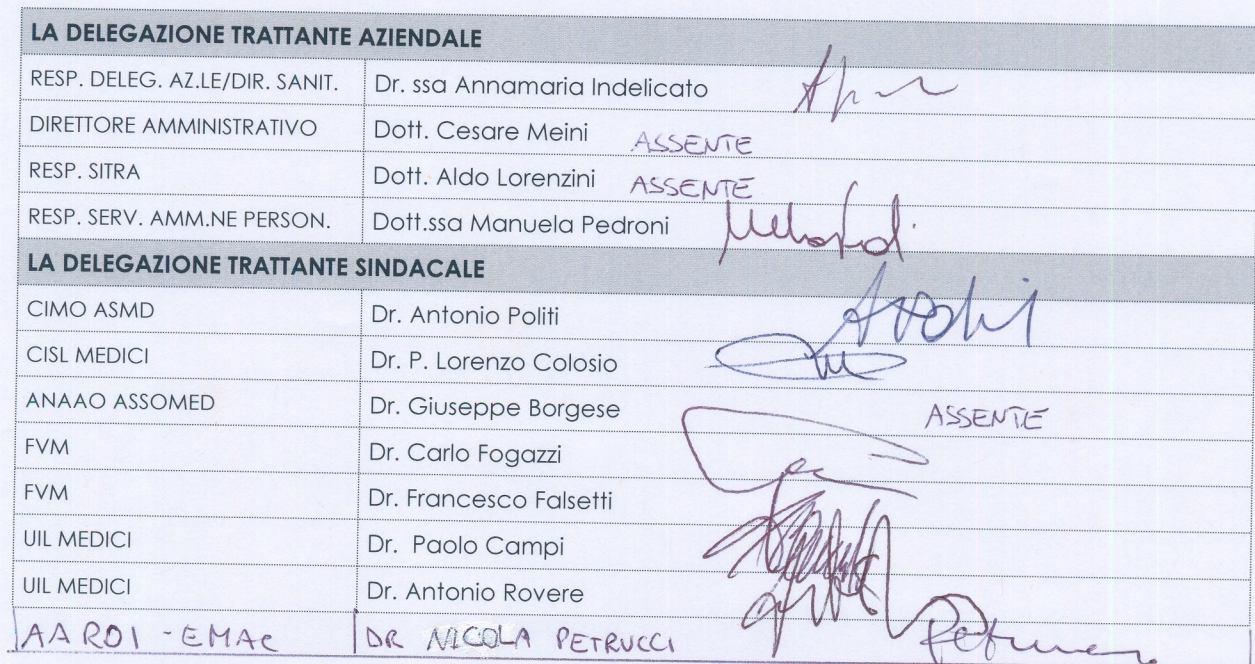 LA DELEGAZIONE TRATTANTE AZIENDALE
RESP. DELEG. AZ.LE/DIR. SANIT. Dr. ssa Annamaria Indelicato
DIRETTORE AMMINISTRATIVO Dott. Cesare Meini ASSENTE
RESP. SITRA Dott. Aldo Lorenzini ASSENTE
RESP. SERV. AMM.NE PERSON. Dott.ssa Manuela Pedroni
LA DELEGAZIONE TRATTANTE SINDACALE
CIMO ASMD Dr. Antonio Politi
CISL MEDICI Dr. P. Lorenzo Colosio
ANAAO ASSOMED Dr. Giuseppe Borgese ASSENTE
FVM Dr. Carlo Fogazzi
FVM Dr. Francesco Falsetti
UIL MEDICI Dr. Paolo Campi
UIL MEDICI Dr. Antonio Rovere
AAROI - EMAC DR NICOLA PETRUCCI